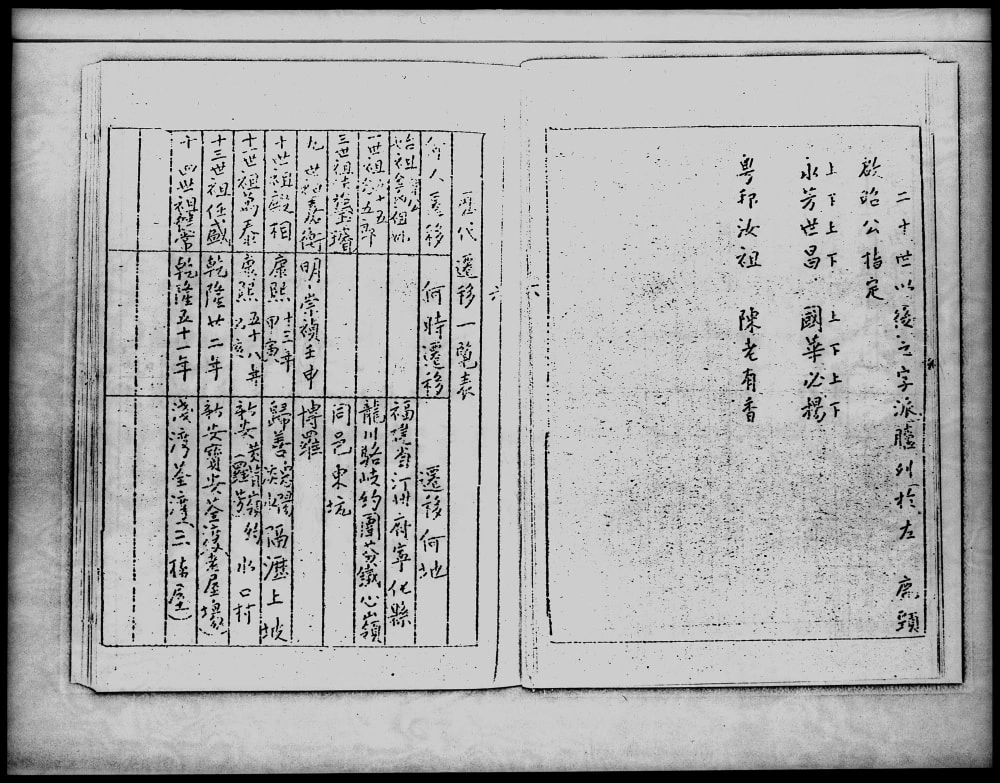 二十世以後之字派臚列於左 鹿頸
啟昭公指定
上下上下 上下上下
永芳世昌 國華必揚
粵邦汝祖 陳老有香
六
歷代遷移一覽表
何人遷移 何時遷移 遷移何地
始祖 福建省汀州府寧化縣
一世祖 五郎 龍川駱岐約圍芬鐵心山嶺
三世祖 同邑東坑
九世祖 衡 明·崇禎壬申 博羅
十世祖殿相 康熙十三年甲寅 歸善淡水 隔瀝上坡
十一世祖萬泰 康熙五十八年己亥 新安 約水口村(羅芳)
十三世祖任盛 乾隆廿二年 新安寶安荃灣(老屋場)
十四世祖 常 乾隆五十一年 淺灣荃灣(三棟屋)